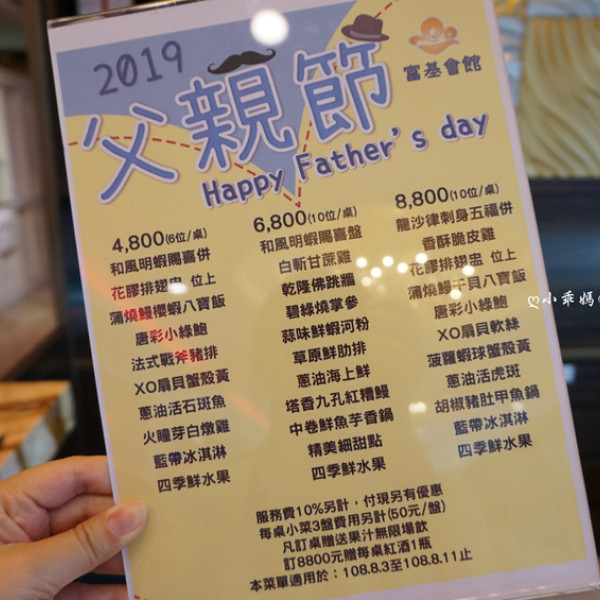 2019
父親節
富基會館
Happy Father's day
4,800(6位/桌)
和風明蝦賜喜併
花膠排翅盅 位上
蒲燒鰻櫻蝦八寶飯
唐彩小綠鮑
法式戰斧豬排
XO扇貝蟹殼黃
蔥油活石斑魚
火瞳芽白燉雞
藍帶冰淇淋
四季鮮水果
6,800(10位/桌)
和風明蝦賜喜盤
白斬甘蔗雞
乾隆佛跳牆
碧綠燒掌參
蒜味鮮蝦河粉
草原鮮肋排
蔥油海上鮮
塔香九孔紅糟鰻
中卷鮮魚芋香鍋
精美細甜點
四季鮮水果
8,800(10位/桌)
龍沙律刺身五福併
香酥脆皮雞
花膠排翅盅 位上
蒲燒鰻干貝八寶飯
唐彩小綠鮑
XO扇貝軟絲
菠蘿蝦球蟹殼黃
蔥油活虎斑
胡椒豬肚甲魚鍋
藍帶冰淇淋
四季鮮水果
服務費10%另計，付現另有優惠
每桌小菜3盤費用另計(50元/盤)
凡訂桌贈送果汁無限場飲
訂8800元贈每桌紅酒1瓶
本菜單適用於：108.8.3至108.8.11止
小乖媽